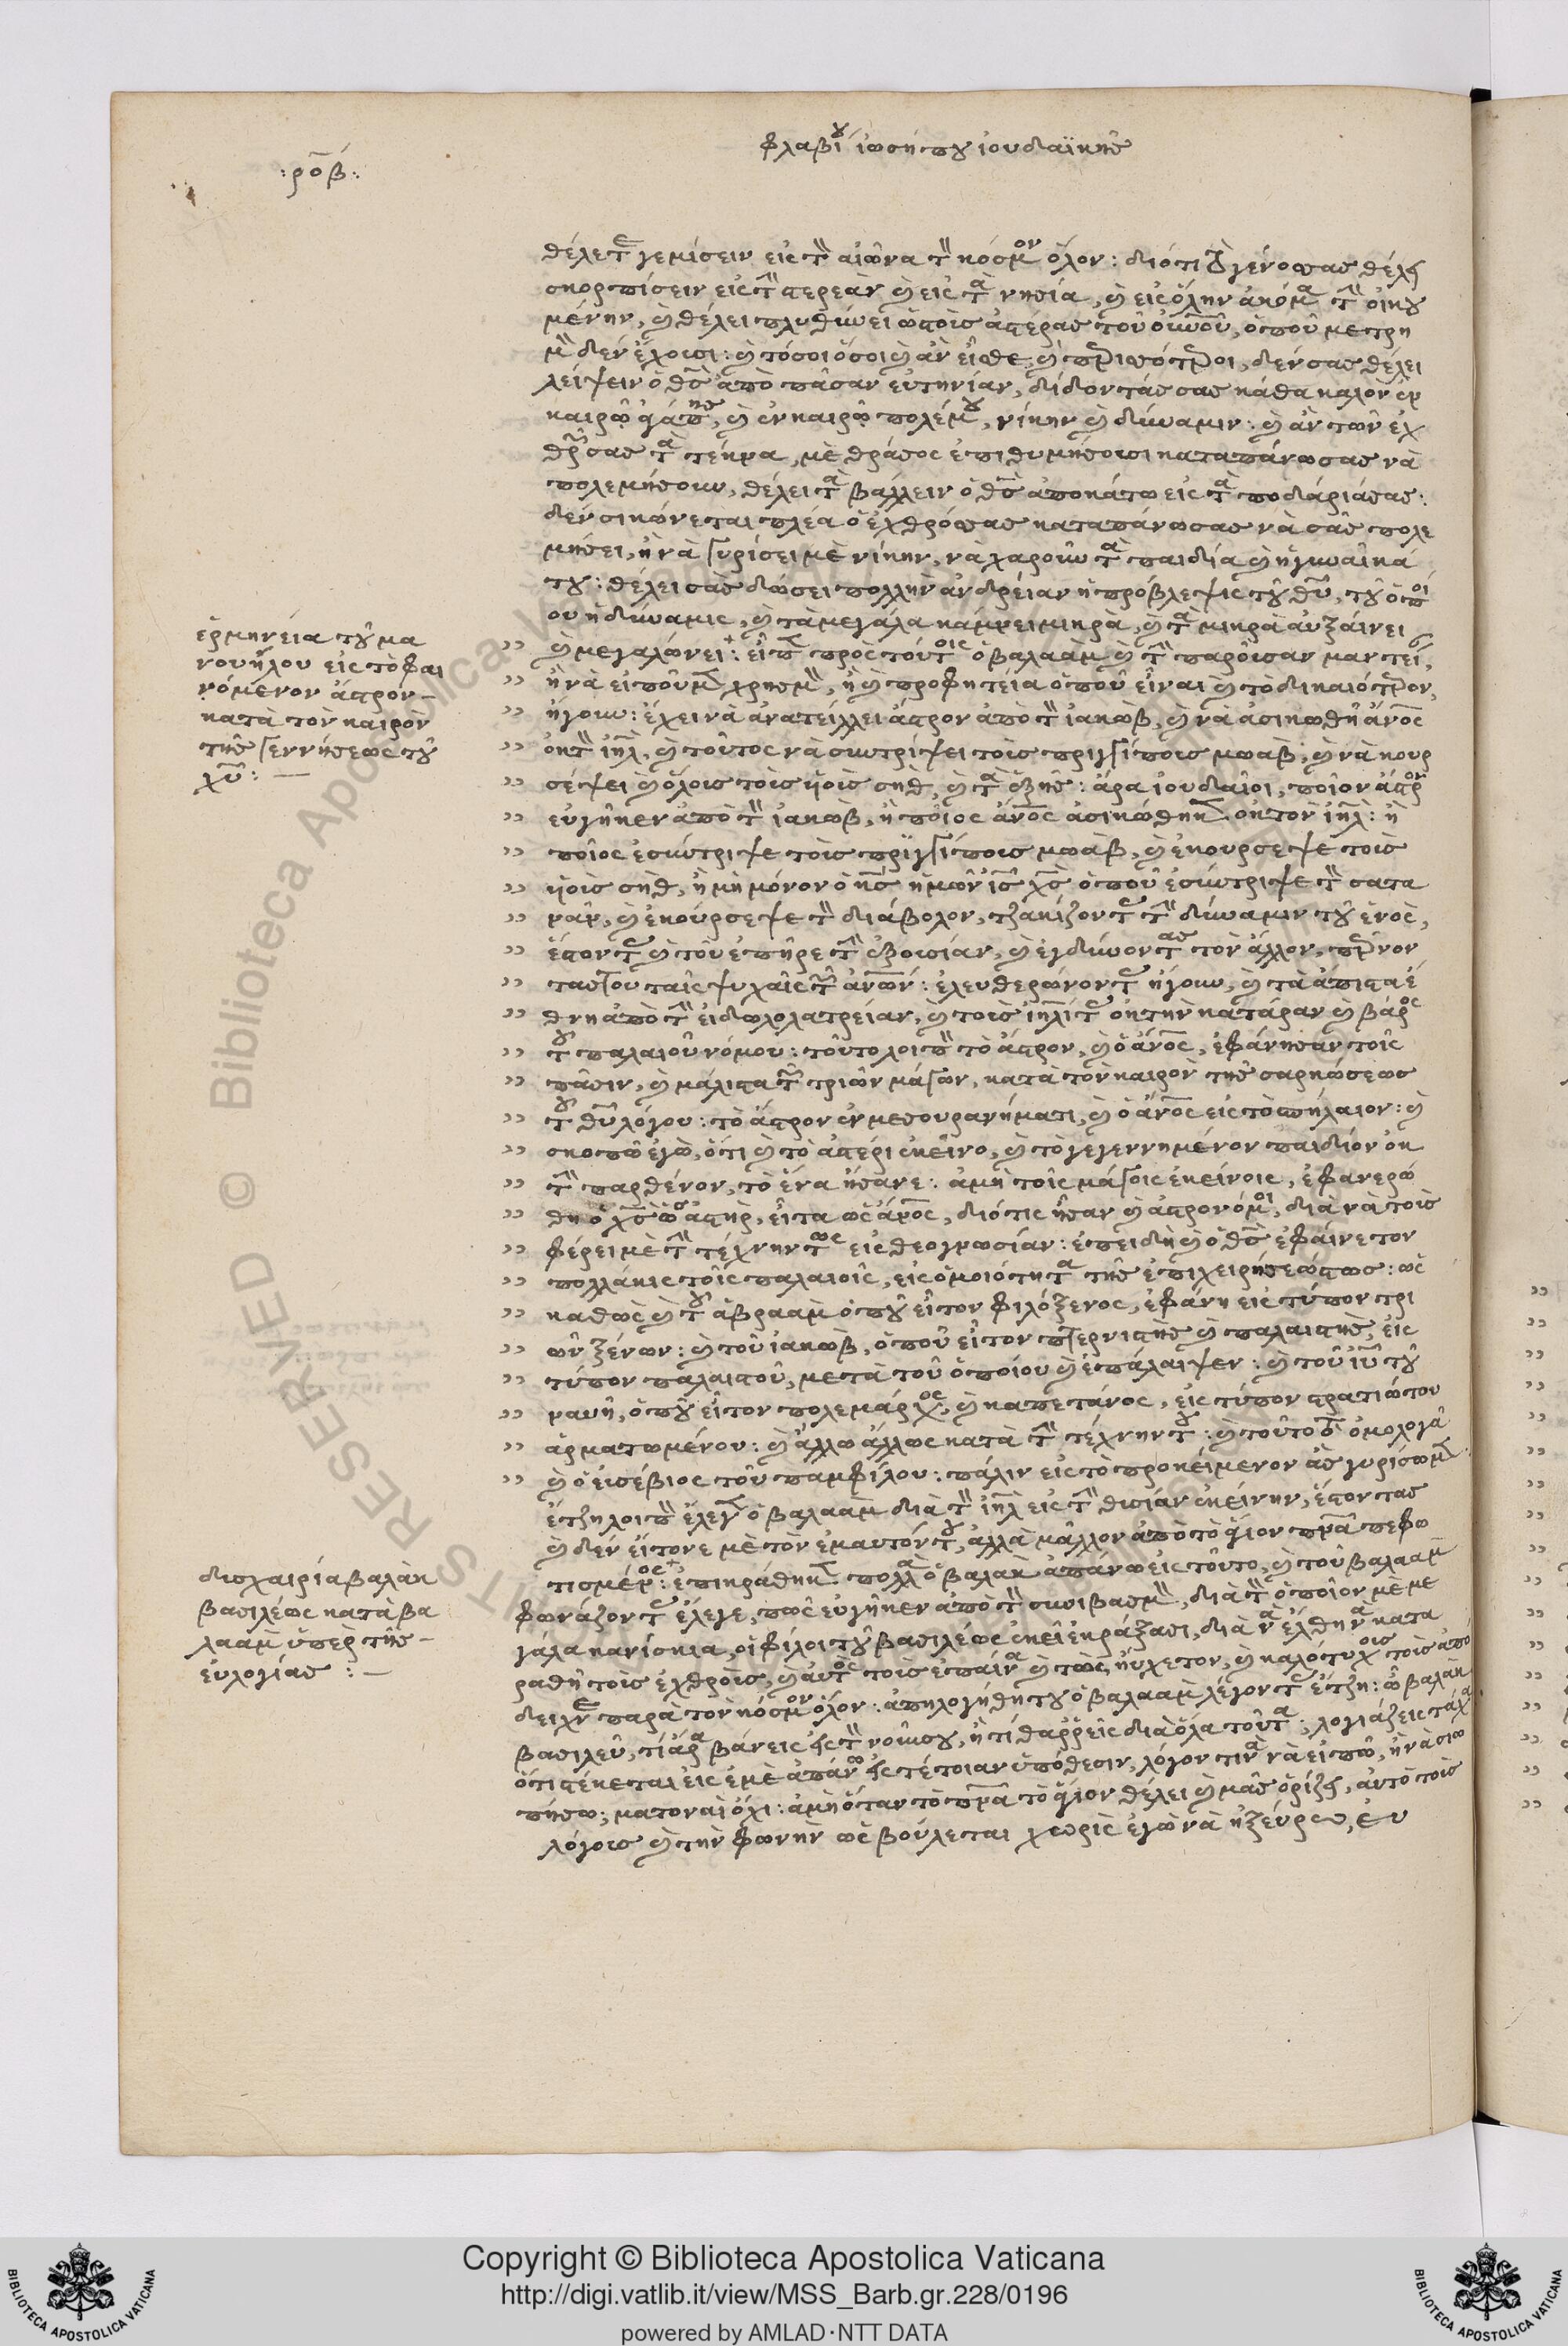 φλαβίου ἰωσήπου ἰουδαϊκῆς
:ροβ:
θέλετε γεμίσειν εἰς τὸν αἰῶνα τὸν κόσμον ὅλον: διότι τὸ γένος σας θέλει
σκορπίσειν εἰς τὴν στερεὰν καὶ εἰς τὰ νησία, καὶ εἰς ὅλην ἀκόμα τὴν οἰκου
μένην, καὶ θέλει πληθύνει ὡς τοῖς ἀστέρας τοῦ οὐνοῦ, ὁποῦ μετρη
μὸν δὲν ἔχουσι: καὶ τόσοι ὅσοι καὶ ἂν εἶσθε, καὶ περισσότεροι, δέν σας θέλει
λείψειν ὁ θς ἀπὸ πᾶσαν εὐτηνίαν, δίδοντάς σας κάθα καλὸν ἐν
καιρῷ ἀγάπης, καὶ ἐν καιρῷ πολέμου, νίκην καὶ δύναμιν: καὶ ἂν τῶν ἐχ
θρῶν σας τὰ τέκνα, μὲ θράσος ἐπιθυμήσουσι καταπάνω σας νὰ
πολεμήσουν, θέλει τὰ βάλλειν ὁ θς ἀποκάτω εἰς τὰ ποδάριά σας:
δὲν σικώνεται πλέα ὁ ἐχθρός σας καταπάνω σας νὰ σᾶς πολε
μήσει, ἢ νὰ γυρίσει μὲ νίκην, νὰ χαροῦν τὰ παιδία καὶ ἡ γυναῖκά
του: θέλει σᾶς δώσει πολλὴν ἀνδρείαν ἡ πρόβλεψις τοῦ θυ, τοῦ ὁποί
ου ἡ δύναμις, καὶ τὰ μεγάλα κάμνει μικρὰ, καὶ τὰ μικρὰ αὐξαίνει
καὶ μεγαλώνει: εἶπε πρὸς τούτοις ὁ βαλαὰμ καὶ τὴν παροῦσαν μαντείαν,
ἢ νὰ εἰποῦμεν χρησμὸν, ἢ καὶ προφητεία ὁποῦ εἶναι καὶ τὸ δικαιότερον,
ἤγουν: ἔχει νὰ ἀνατείλλει ἄστρον ἀπὸ τὸν ἰακὼβ, καὶ νὰ ἀσικωθῆ ἄνος
ἐκ τὸν ιηλ, καὶ τοῦτος νὰ συντρίψει τοῖς πριγγίποις μωὰβ, καὶ νὰ κουρ
σέψει καὶ ὅλοις τοῖς ὑοῖς σηθ, καὶ τὰ ἑξῆς: ἄρα ἰουδαῖοι, ποῖον ἄστρον
εὐγῆκεν ἀπὸ τὸν ἰακὼβ, ἢ ποῖος ἄνος ἀσικώθηκεν ἐκ τὸν ιηλ: ἢ
ποῖος ἐσύντριψε τοῖς πριγγίποις μωὰβ, καὶ ἐκούρσεψε τοῖς
ὑοῖς σηθ, ἢ μὴ μόνον ὁ κς ἡμῶν ις χς ὁποῦ ἐσύντριψε τὸν σατα
νᾶν, καὶ ἐκούρσεψε τὸν διάβολον, τζακίζοντας τὴν δύναμιν τοῦ ἑνὸς,
ἔστοντας καὶ τοῦ ἐπῆρε τὴν ἐξουσίαν, καὶ ἐγδύνοντας τὸν ἄλλον, πέρνον
τας του ταῖς ψυχαῖς τῶν ἀνων: ἐλευθερώνοντας ἤγουν, καὶ τὰ ἄπιστα ἔ
θνη ἀπὸ τὴν εἰδωλολατρείαν, καὶ τοῖς ιηλίτας ἐκ τὴν κατάραν καὶ βάρος
τοῦ παλαιοῦ νόμου: τοῦτο λοιπὸν τὸ ἄστρον, καὶ ὁ ἄνος, ἐφάνησαν τοῖς
πᾶσιν, καὶ μάλιστα τῶν τριῶν μάγων, κατὰ τὸν καιρὸν τῆς σαρκώσεως
τοῦ θυ λόγου: τὸ ἄστρον ἐν μεσουρανήματι, καὶ ὁ ἄνος εἰς τὸ σπήλαιον: καὶ
σκοπῶ ἐγὼ, ὅτι καὶ τὸ ἀστέρι ἐκεῖνο, καὶ τὸ γεγεννημένον παιδίον ἐκ
τὴν παρθένον, τὸ ἕνα ἤσανε: ἀμὴ τοῖς μάγοις ἐκείνοις, ἐφανερώ
θη ὁ χς ὡς ἀστὴρ, εἶτα ὡς ἄνος, διότις ἦσαν καὶ ἀστρονόμοι, διὰ νὰ τοῖς
φέρει μὲ τὴν τέχνην τως εἰς θεογνωσίαν: ἐπειδὴ καὶ ὁ θς ἐφαίνετον
πολλάκις τοῖς παλαιοῖς, εἰς ὁμοιότητα τῆς ἐπιχειρήσεώς τως: ὡς
καθὼς καὶ τοῦ ἀβραὰμ ὁποῦ εἶτον φιλόξενος, ἐφάνη εἰς τύπον τρι
ῶν ξένων: καὶ τοῦ ἰακὼβ, ὁποῦ εἶτον πτερνιστὴς καὶ παλαιστὴς, εἰς
τύπον παλαιστοῦ, μετὰ τοῦ ὁποίου καὶ ἐπάλαιψεν: καὶ τοῦ ιυ τοῦ
ναυῆ, ὁποῦ εἶτον πολεμάρχος, καὶ καπετάνος, εἰς τύπον στρατιώτου
ἀρματωμένου: καὶ ἄλλω ἄλλως κατὰ τὴν τέχνην του: καὶ τοῦτο ὁμολογᾶ
καὶ ὁ εὐσέβιος τοῦ παμφίλου: πάλιν εἰς τὸ προκείμενον ἂς γυρίσωμεν.
ἔτζη λοιπὸν ἔλεγεν ὁ βαλαὰμ διὰ τὸν ιηλ εἰς τὴν θυσίαν ἐκείνην, ἔστοντας
καὶ δὲν εἴτονε μὲ τὸν ἐμαυτόν του, ἀλλὰ μᾶλλον ἀπὸ τὸ ἅγιον πνα πεφω
τισμένος: ἐπικράθηκεν πολλὰ ὁ βαλὰκ ἀπάνω εἰς τοῦτο, καὶ τοῦ βαλαὰμ
φωνάζοντας ἔλεγε, πῶς εὐγῆκεν ἀπὸ τὸν συνιβασμὸν, διὰ τὸν ὁποῖον μὲ με
γάλα κανίσκια, οἱ φίλοι τοῦ βασιλέως ἐκεῖ ἐκράξασι, διὰ νὰ ἔλθη νὰ κατα
ραθῆ τοῖς ἐχθροῖς, καὶ αὐτὸς τοῖς ἐπαίνα καὶ τῶς ηὔχετον, καὶ καλότυχοις τοῖς ἀπο
δειχνε παρὰ τὸν κόσμον ὅλον: ἀπηλογήθη του ὁ βαλαὰμ λέγοντας ἔτζη: ὦ βαλὰκ
βασιλεῦ, τί ἄρα βάνεις εἰς τὸν νοῦν σου, ἢ τί θαῤῥεῖς διὰ ὅλα τοῦτα; λογιάζεις τάχα
ὅτι στέκεται εἰς ἐμὲ ἀπάνω εἰς τέτοιαν ὑπόθεσιν, λόγον τινὰ νὰ εἰπῶ, ἢ νὰ σιω
πήσω; ματοναὶ ὄχι: ἀμὴ ὅταν τὸ πνα τὸ ἅγιον θέλει καὶ μᾶς ὁρίζει, αὐτὸ τοῖς
λόγοις καὶ τὴν φωνὴν ὡς βούλεται χωρὶς ἐγὼ νὰ ἠξεύρω, εὐ
ἑρμηνεία τοῦ μα
νουήλου εἰς τὸ φαι
νόμενον ἄστρον
κατὰ τὸν καιρὸν
τῆς γεννήσεως τοῦ
χυ: —
δυσχαιρία βαλὰκ
βασιλέως κατὰ βα
λαὰμ ὑπὲρ τῆς
εὐλογίας: —
Copyright © Biblioteca Apostolica Vaticana
http://digi.vatlib.it/view/MSS_Barb.gr.228/0196
powered by AMLAD·NTT DATA
BIBLIOTECA APOSTOLICA VATICANA
BIBLIOTECA APOSTOLICA VATICANA